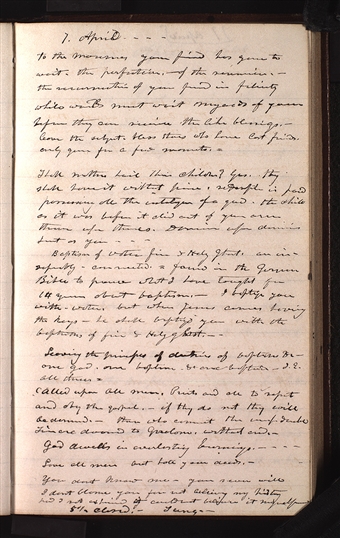 7. April - - - -
to the mourners your friend has gone to
wait the perfection of the reunion. -
the resurrection of your friend in felicity
while worlds must wait myriads of years
before they can receive the like blessings. -
leave the subject. bless those who have lost friends.
only gone for a few moments =
Shall mothers have their Children? Yes. they
shall have it without price. redemption is paid
possessing all the intelligence of a god. the child
as it was before it died out of your arms
thrones upon thrones. dominion upon dominion
just as you - - - -
Baptism of water fire & Holy Ghost. are in-
separably connected. found in the German
Bible to prove what I have taught for
14 years about baptism. - I baptize you
with water, but when Jesus comes having
the keys - he shall baptize you with the
baptism of fire & Holy Ghost. - -
Leaving the principles of doctrine of baptism &c -
one god, one baptism. & one baptism - I.E.
all three =
Called upon all men, Priests and all to repent
and obey the gospel. - if they do not they will
be damned. - Those who commit the unpardonable
sin are doomed to Gnaolom. without end. -
God dwells in everlasting burnings. - - -
Love all men but hate your deeds. -
You dont know me - you never will
I dont blame you for not believing my history
had I not experienced it could not believe it myself
5½ closed. -